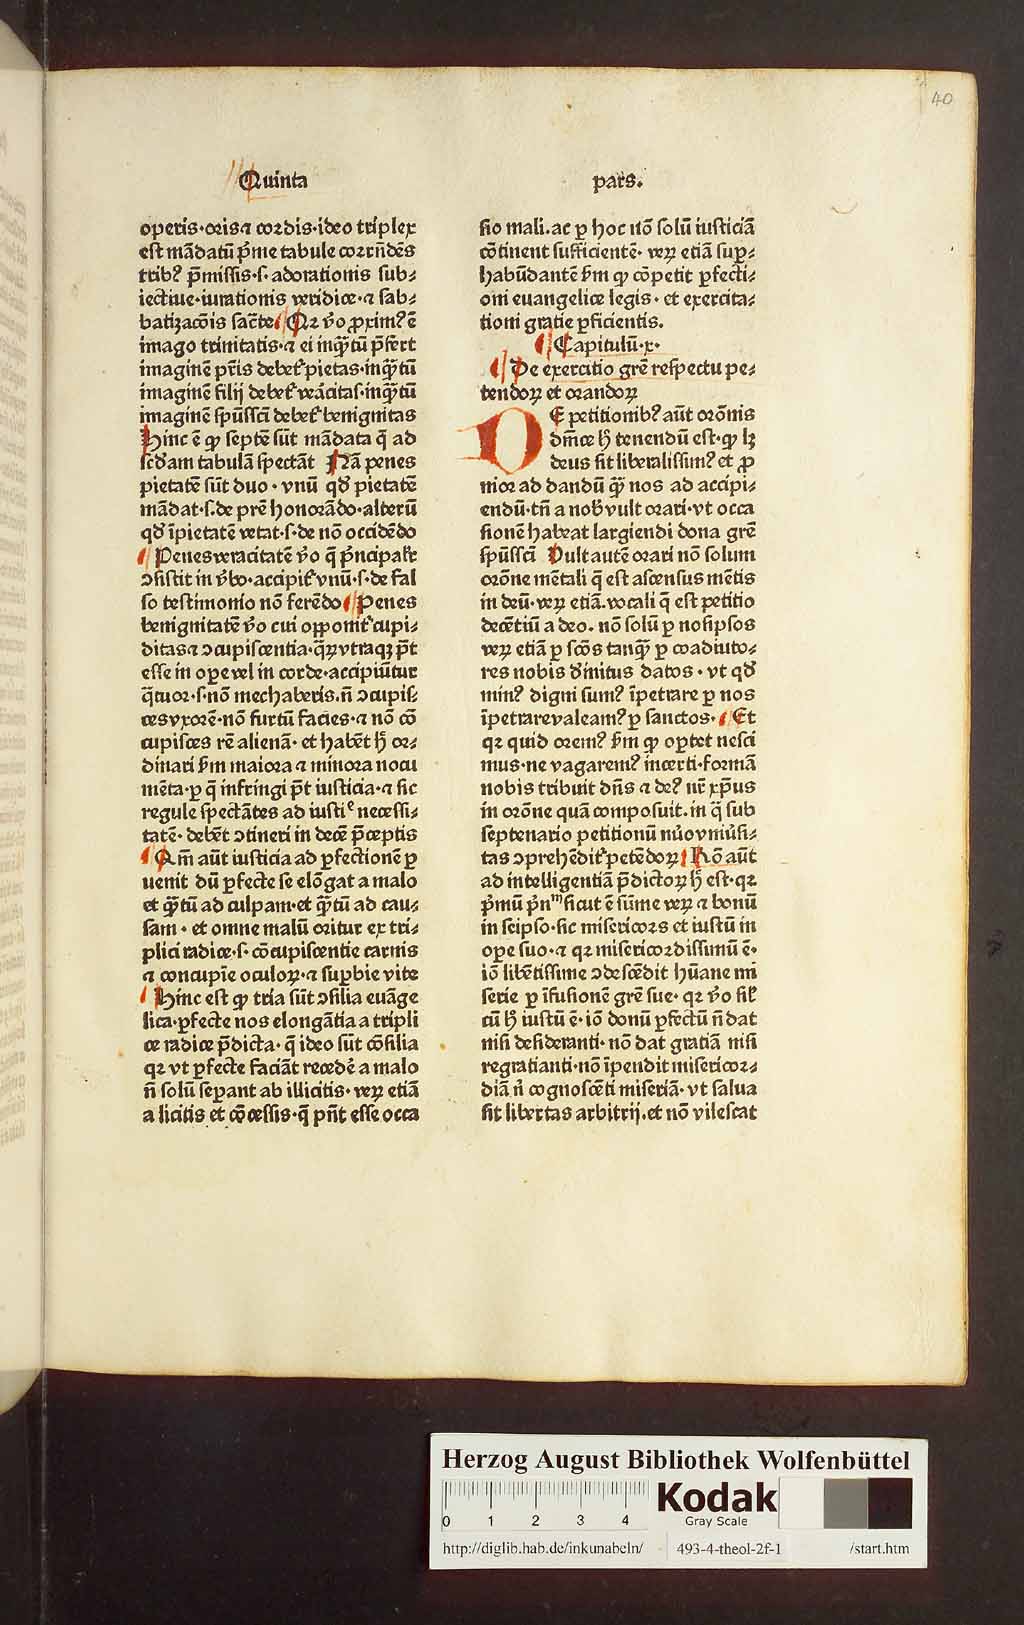 40
Quinta pars.
operis·oris⁊ cordis·ideo triplex
est mādatū p̄me tabule corrn̄dēs
trib⁹ p̄missis·s· adorationis sub⸗
iectiue·iurationis veridice·⁊ sab⸗
batizacōis sācte ¶ Qꝛ v̄o proxim⁹ ē
imago trinitatis·⁊ ei inqͣtū p̄fert
imaginē pr̄is debet᷑ pietas·inqͣtū
imaginē filij debet᷑ ve᷑acitas·inqͣtū
imaginē spūssci debet᷑ benignitas
Hinc ē ꝙ septē sūt mādata q̄ ad
scd̓am tabulā spectāt Nā penes
pietatē sūt duo·vnū qd̓ pietatē
mādat·s·de prē honorādo·alterū
qd̓ īpietatē vetat·s·de nō occidēdo
¶ Penes veracitatē v̄o q̄ p̄ncipalr̄
ↄsistit in v̄bo·accipit᷑ vnū·s·de fal
so testimonio nō ferēdo ¶ Penes
benignitatē v̄o cui opponit᷑ cupi⸗
ditas⁊ ↄcupiscentia·q̄ꝝ vtraqꝫ p̄t
esse in oꝑe vel in corde·accipiūtur
q̄tuor·s·nō mechaberis·n̄ ↄcupis⸗
ces vxorē·nō furtū facies·⁊ nō cō
cupisces rē alienā·et habēt h̄ or⸗
dinari s̄m maiora ⁊ minora nocu
mēta·ꝑ q̄ infringi p̄t iusticia·⁊ sic
regule spectātes ad iustiᵉ necessi⸗
tatē·debēt ↄtineri in decē p̄ceptis
¶ Qm̄ aūt iusticia ad ꝑfectionē ꝑ
uenit dū ꝑfecte se elōgat a malo
et qͣtū ad culpam·et qͣtū ad cau⸗
sam·et omne malū oritur ex tri⸗
plici radice·s·cōcupiscentie carnis
⁊ concupīe oculoꝝ·⁊ suꝑbie vite
¶ Hinc est ꝙ tria sūt ↄsilia euāge
lica·ꝑfecte nos elongātia a tripli
ce radice p̄dicta·q̄ ideo sūt cōsilia
qꝛ vt ꝑfecte faciāt recede᷑ a malo
n̄ solū seꝑant ab illicitis·veꝝ etiā
a licitis et cōcessis·q̄ pn̄t esse occa
sio mali.ac ꝑ hoc nō solū iusticiā
cōtinent sufficientē·veꝝ etiā suꝑ⸗
habūdantē s̄m ꝙ cōpetit ꝑfecti⸗
oni euangelice legis·et exercita⸗
tioni gratie ꝑficientis.
¶ Capitulū·x·
¶ De exercitio gr̄e respectu pe⸗
tendoꝝ et orandoꝝ
DE petitionib⁹ aūt orōnis
dn̄ice h̄ tenendū est·ꝙ lꝫ
deus sit liberalissim⁹ et pro
nior ad dandū qͣ nos ad accipi⸗
endū·tn̄ a nob̓ vult orari·vt occa
sionē habeat largiendi dona gr̄e
spūssci Uult autē orari nō solum
orōne mētali q̄ est ascensus mētis
in deū·veꝝ etiā.vocali q̄ est petitio
decētiū a deo.nō solū ꝑ nosipsos
veꝝ etiā ꝑ scōs tanqͣ ꝑ coadiuto⸗
res nobis d̓initus datos·vt qd̓
min⁹ digni sum⁹ īpetrare ꝑ nos
īpetrare valeam⁹ ꝑ sanctos·¶ Et
qꝛ quid orem⁹ s̄m ꝙ oꝑtet nesci
mus·ne vagarem⁹ incerti·formā
nobis tribuit dn̄s ⁊ de⁹ nr̄ xp̄us
in orōne quā composuit.in q̄ sub
septenario petitionū nūo vniūsi⸗
tas ↄprehēdit᷑ petēdoꝝ ¶ Rō aūt
ad intelligentiā p̄dictoꝝ h̄ est·qꝛ
p̄mū p̄nᵐ sicut ē sūme veꝝ ⁊ bonū
in seipso·sic misericors et iustū in
oꝑe suo·⁊ qꝛ misericordissimū ē·
iō libētissime ↄdescēdit hūane mi
serie ꝑ īfusionē gr̄e sue·qꝛ v̄o sil᷑
cū h̄ iustū ē·iō donū ꝑfectū n̄ dat
nisi desideranti·nō dat gratiā nisi
regratianti·nō īpendit misericor⸗
diā n̄ cognoscēti miseriā·vt salua
sit libertas arbitrij.et nō vilescat
Herzog August Bibliothek Wolfenbüttel
0 1 2 3 4
Kodak
Gray Scale
http://diglib.hab.de/inkunabeln/ 493-4-theol-2f-1 /start.htm